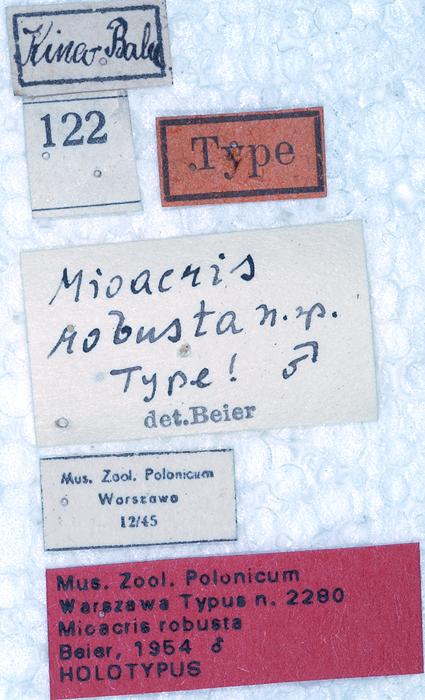 Kina-Balu
122
Type
Mioacris
robusta n.sp.
Type! ♂
det.Beier
Mus. Zool. Polonicum
Warszawa
12/45
Mus. Zool. Polonicum
Warszawa Typus n. 2280
Mioacris robusta
Beier, 1954 ♂
HOLOTYPUS